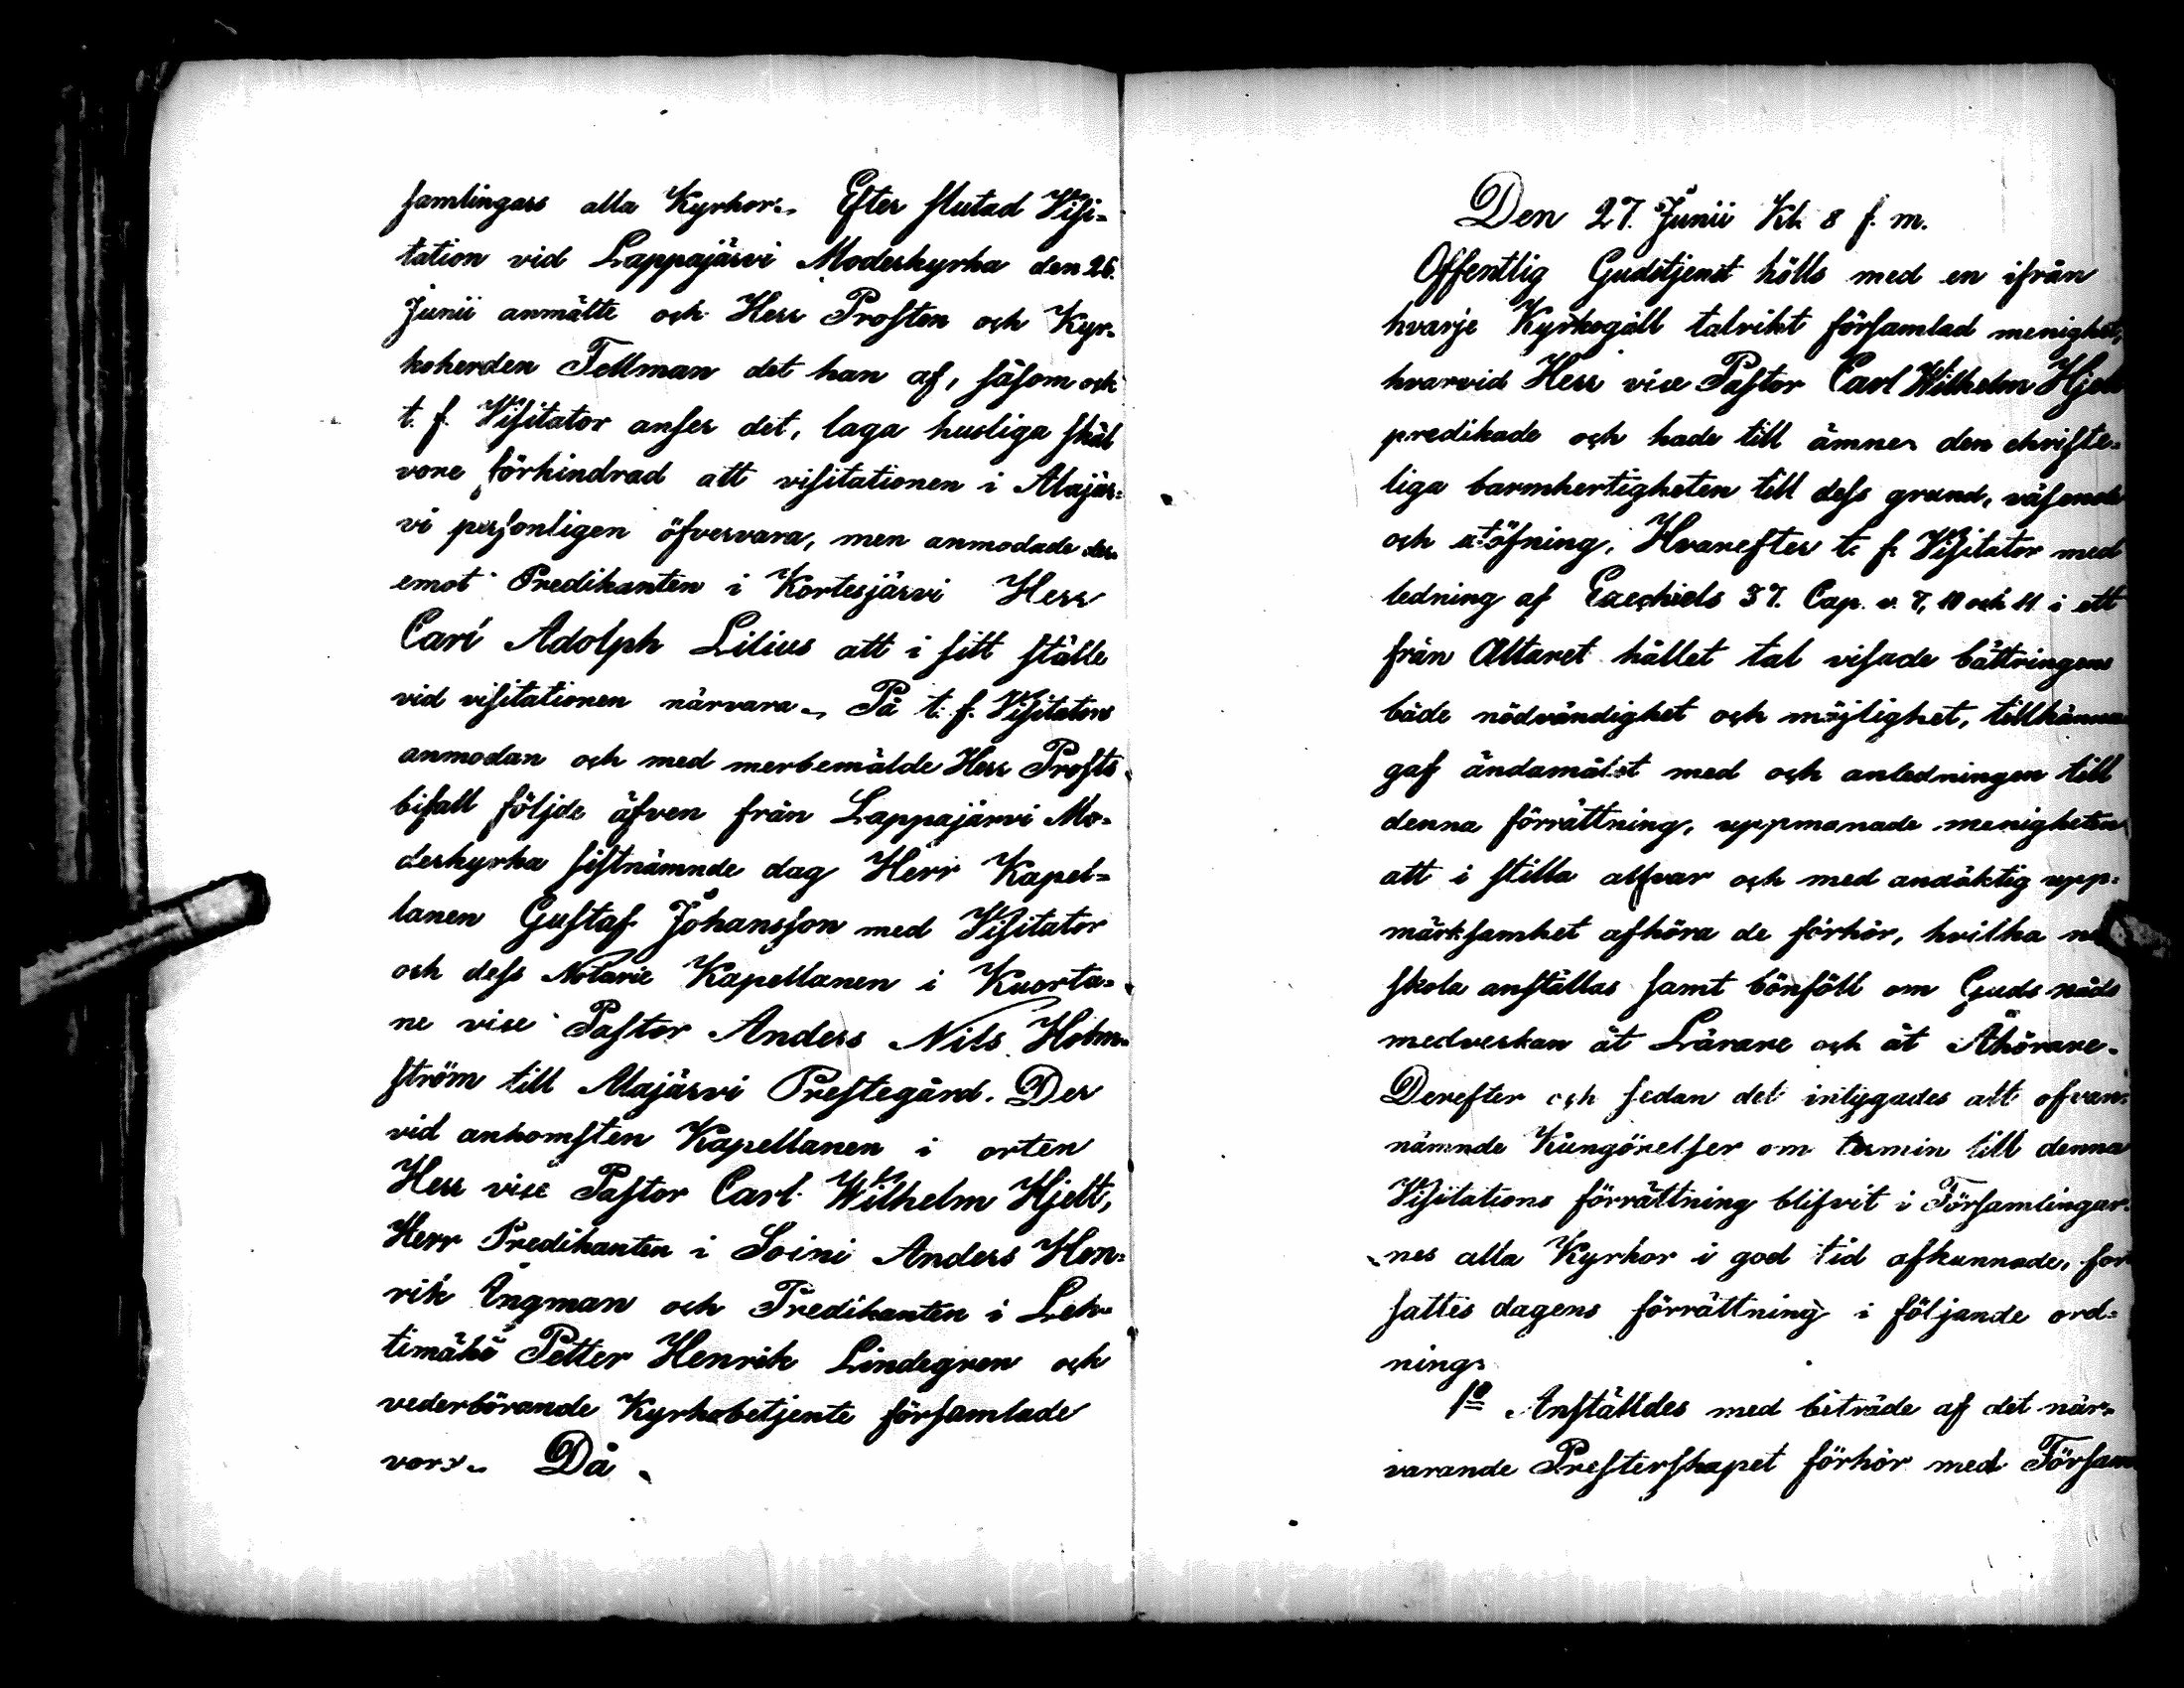 samlingars alla Kyrkor. Efter slutad Visi-
tation vid Lappajärvi Moderkyrka den 26.
Junii anmälte och Herr Prosten och Kyr-
koherden Tellman det han af, såsom ock
t. f. Visitator anser det, laga husliga skäl
vore förhindrad att visitationen i Alajär-
vi personligen öfvervara, men anmodade der-
emot Predikanten i Kortesjärvi Herr
Carl Adolph Lilius att i sitt ställe
vid visitationen närvara. På t. f. Visitators
anmodan och med merbemälde Herr Prosts
bifall följde äfven från Lappajärvi Mo-
derkyrka sistnämnde dag Herr Kapel-
lanen Gustaf Johansson med Visitator
och dess Notarie Kapellanen i Kuorta-
ne vice Pastor Anders Nils Holm-
ström till Alajärvi Prestegård. Der
vid ankomsten Kapellanen i orten
Herr vice Pastor Carl Wilhelm Hjelt,
Herr Predikanten i Soini Anders Hen-
rik Engman och Predikanten i Leh-
timäki Petter Henrik Lindegren och
vederbörande Kyrkobetjente församlade
voro. Då
Den 27. Junii Kl. 8 f. m.
Offentlig Gudstjenst hölls med en ifrån
hvarje Kyrkogäll talrikt församlad menighet,
hvarvid Herr vice Pastor Carl Wilhelm Hjelt
predikade och hade till ämne den christe-
liga barmhertigheten till dess grund, väsende
och utöfning. Hvarefter t. f. Visitator med
ledning af Ezechiels 37. Cap. v. 7, 10 och 11 i ett
från Altaret hållet tal visade bättringens
både nödvändighet och möjlighet, tillkänna
gaf ändamålet med och anledningen till
denna förrättning, uppmanade menigheten
att i stilla allvar och med andäktig upp-
märksamhet afhöra de förhör, hvilka nu
skola anställas samt bönföll om Guds nåds
medverkan åt Lärare och åt Åhörare.
Derefter och sedan det intygades att ofvan-
nämnde Kungörelser om termin till denna
Visitations förrättning blifvit i Församlingar-
nes alla Kyrkor i god tid afkunnade, for
sattes dagens förrättning i följande ord-
ning:
1º Anställdes med biträde af det när-
varande Presterskapet förhör med Församl